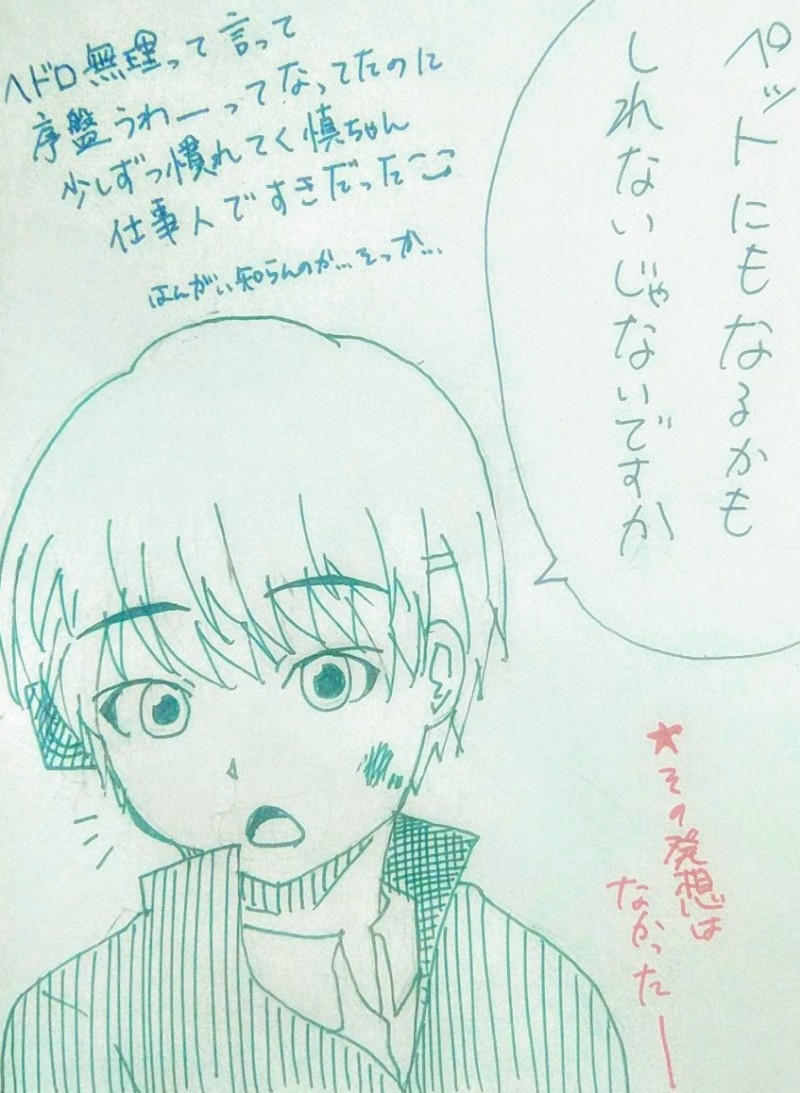 ペットにもなるかも
しれないじゃないですか
ヘドロ無理って言って
序盤うわーってなってたのに
少しずつ慣れてく慎ちゃん
仕事人ですきだった
はんがい知らんのか…そっか…
★その発想は
なかったー